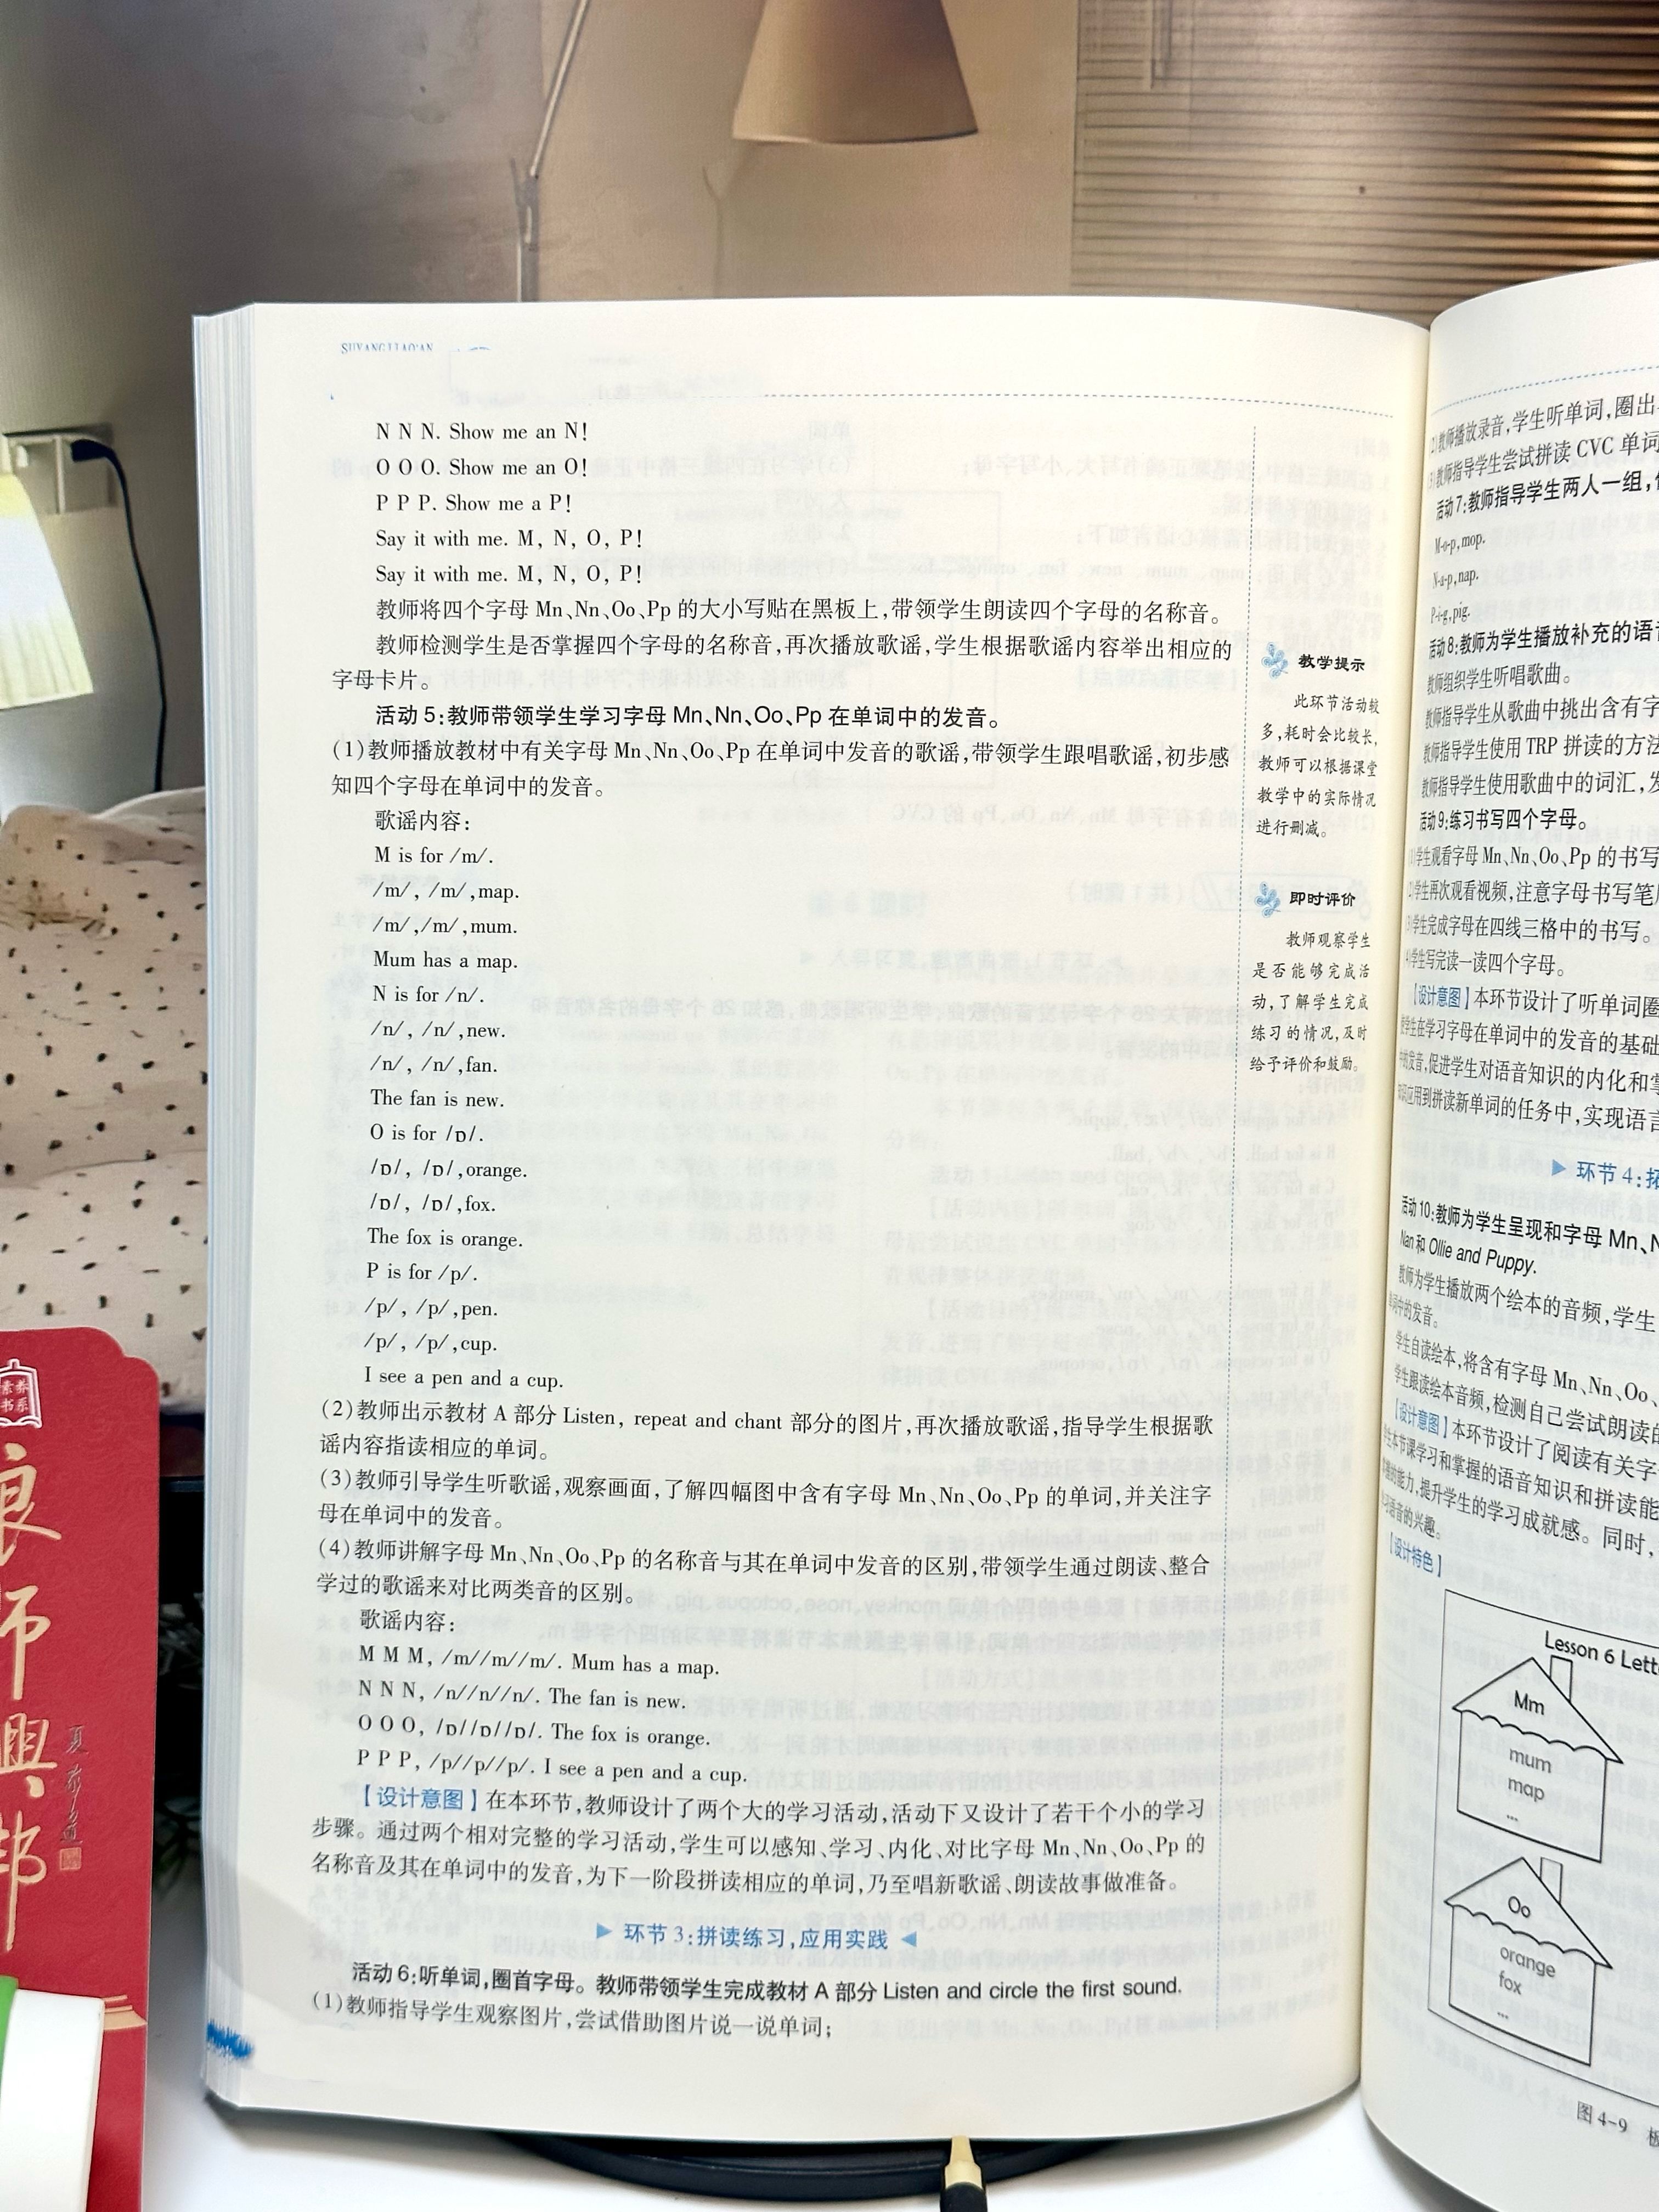 SUYANGJIAO'AN
N N N. Show me an N!
O O O. Show me an O!
P P P. Show me a P!
Say it with me. M, N, O, P!
Say it with me. M, N, O, P!
教师将四个字母 Mm、Nn、Oo、Pp 的大小写贴在黑板上,带领学生朗读四个字母的名称音。
教师检测学生是否掌握四个字母的名称音,再次播放歌谣,学生根据歌谣内容举出相应的
字母卡片。
活动 5:教师带领学生学习字母 Mm、Nn、Oo、Pp 在单词中的发音。
(1)教师播放教材中有关字母 Mm、Nn、Oo、Pp 在单词中发音的歌谣,带领学生跟唱歌谣,初步感
知四个字母在单词中的发音。
歌谣内容:
M is for /m/.
/m/, /m/,map.
/m/,/m/,mum.
Mum has a map.
N is for /n/.
/n/, /n/,new.
/n/, /n/,fan.
The fan is new.
O is for /ɒ/.
/ɒ/, /ɒ/,orange.
/ɒ/, /ɒ/,fox.
The fox is orange.
P is for /p/.
/p/, /p/,pen.
/p/, /p/,cup.
I see a pen and a cup.
(2)教师出示教材 A 部分 Listen, repeat and chant 部分的图片,再次播放歌谣,指导学生根据歌
谣内容指读相应的单词。
(3)教师引导学生听歌谣,观察画面,了解四幅图中含有字母 Mm、Nn、Oo、Pp 的单词,并关注字
母在单词中的发音。
(4)教师讲解字母 Mm、Nn、Oo、Pp 的名称音与其在单词中发音的区别,带领学生通过朗读、整合
学过的歌谣来对比两类音的区别。
歌谣内容:
M M M, /m//m//m/. Mum has a map.
N N N, /n//n//n/. The fan is new.
O O O, /ɒ//ɒ//ɒ/. The fox is orange.
P P P, /p//p//p/. I see a pen and a cup.
【设计意图】在本环节,教师设计了两个大的学习活动,活动下又设计了若干个小的学习
步骤。通过两个相对完整的学习活动,学生可以感知、学习、内化、对比字母 Mm、Nn、Oo、Pp 的
名称音及其在单词中的发音,为下一阶段拼读相应的单词,乃至唱新歌谣、朗读故事做准备。
▶ 环节 3:拼读练习,应用实践 ◀
活动 6:听单词,圈首字母。教师带领学生完成教材 A 部分 Listen and circle the first sound.
(1)教师指导学生观察图片,尝试借助图片说一说单词;
教学提示
此环节活动较
多,耗时会比较长,
教师可以根据课堂
教学中的实际情况
进行删减。
即时评价
教师观察学生
是否能够完成活
动,了解学生完成
练习的情况,及时
给予评价和鼓励。
2)教师播放录音,学生听单词,圈出
3)教师指导学生尝试拼读 CVC 单词
活动 7:教师指导学生两人一组,
M-o-p,mop.
N-a-p,nap.
P-i-g,pig.
活动 8:教师为学生播放补充的语
教师组织学生听唱歌曲。
教师指导学生从歌曲中挑出含有字
教师指导学生使用 TRP 拼读的方法
教师指导学生使用歌曲中的词汇,发
活动 9:练习书写四个字母。
学生观看字母 Mm、Nn、Oo、Pp 的书写
2)学生再次观看视频,注意字母书写笔
3)学生完成字母在四线三格中的书写。
4)学生写完读一读四个字母。
【设计意图】本环节设计了听单词圈
学生在学习字母在单词中的发音的基础
中的发音,促进学生对语音知识的内化和
应用到拼读新单词的任务中,实现语言
▶ 环节 4:拓
活动 10:教师为学生呈现和字母 Mm、N
Nan 和 Ollie and Puppy.
教师为学生播放两个绘本的音频,学生
单词中的发音。
学生自读绘本,将含有字母 Mm、Nn、Oo、
学生跟读绘本音频,检测自己尝试朗读的
【设计意图】本环节设计了阅读有关字
本节课学习和掌握的语音知识和拼读能
的能力,提升学生的学习成就感。同时,
语音的兴趣。
【设计特色】
Lesson 6 Lett
Mm
mum
map
...
Oo
orange
fox
...
图 4-9 板
素养
书系
师
興
邦